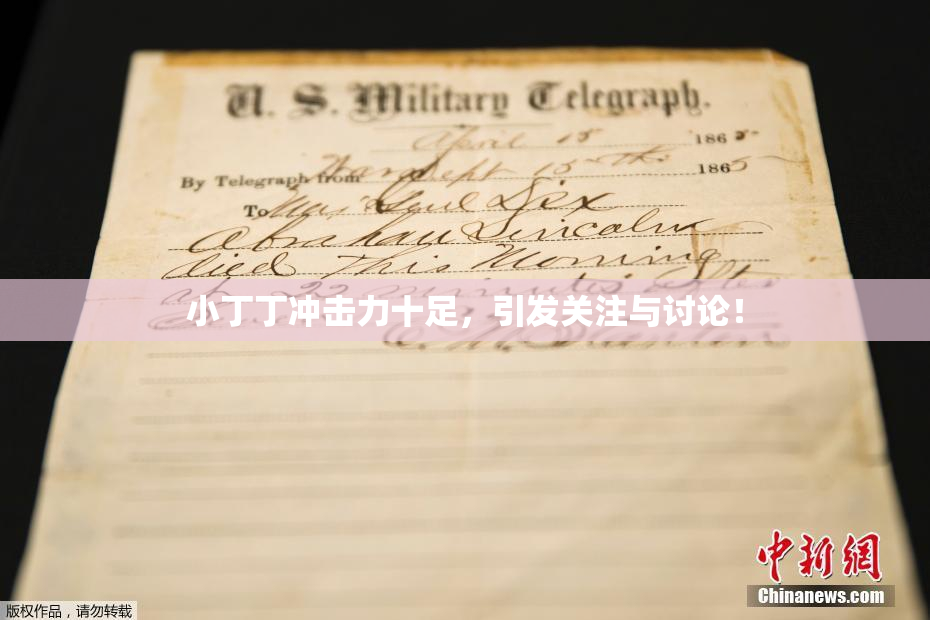 U. S. Military Telegraph.
April 15 1865
By Telegraph from War Dept 15th 1865
To Maj Genl Dix
Abraham Lincoln
died This Morning
at 22 minutes after
小丁丁冲击力十足，引发关注与讨论！
E. M. Stanton
中新网
Chinanews.com
版权作品，请勿转载